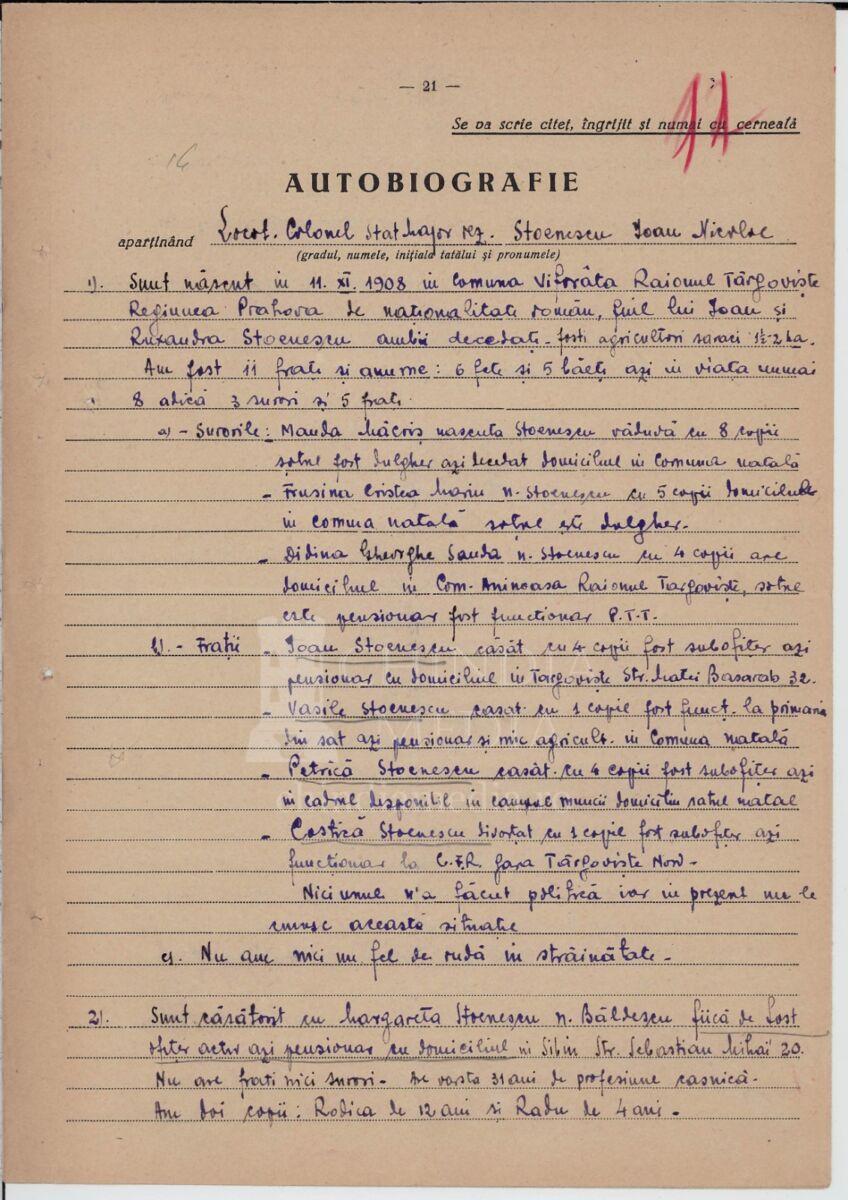 — 21 —
Se va scrie citeț, îngrijit și numai cu cerneală
17
16
AUTOBIOGRAFIE
aparținând Locot. Colonel Stat Major rez. Stoenescu Ioan Nicolae
(gradul, numele, inițiala tatălui și pronumele)
1). Sunt născut in 11. XI. 1908 in Comuna Viforâta Raionul Târgoviște
Regiunea Prahova de naționalitate român, fiul lui Ioan și
Ruxandra Stoenescu ambii decedați - foști agricultori saraci 1½-2 ha.
Am fost 11 frați și anume: 6 fete și 5 băeți azi in viața numai
8 adică 3 surori și 5 frați.
a) - Surorile: Manda Măcriș nascuta Stoenescu văduvă cu 8 copii
soțul fost dulgher azi decedat domiciliul in Comuna natală
- Frusina Cristea Marin n. Stoenescu cu 5 copii domiciliul
in comuna natală soțul este dulgher.
- Didina Gheorghe Sanda n. Stoenescu cu 4 copii are
domiciliul in Com. Aninoasa Raionul Targoviște, soțul
este pensionar fost functionar P.T.T.
b). - Frații - Ioan Stoenescu căsăt cu 4 copii fost subofițer azi
pensionar cu domiciliul in Targoviște Str. Matei Basarab 32.
- Vasile Stoenescu casat cu 1 copil fost funcț. la primaria
din sat azi pensionar și mic agricult. in Comuna natală
- Petrică Stoenescu casăt. cu 4 copii fost subofițer azi
in cadrul disponibil in campul muncii domiciliu satul natal
- Costică Stoenescu divorțat cu 1 copil fost subofițer azi
funcționar la C.F.R. gara Târgoviște Nord -
Nici unul n'a făcut politică iar in prezent nu le
cunosc această situație
c). Nu am nici un fel de rudă in străinătate -
2). Sunt căsătorit cu Margareta Stoenescu n. Băldescu fiică de fost
ofițer activ azi pensionar cu domiciliul in Sibiu Str. Sebastian Mihai 20.
Nu are frati nici surori - In varsta 31 ani de profesiune casnică -
Am doi copii: Rodica de 12 ani și Radu de 4 ani -